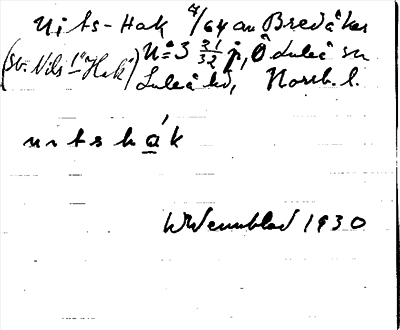 Nits-Hak 4/64 av Bredåker
(Sv. Nils-"Hak") No 3 21/32 j, Ö Luleå sn
Luleå hd, Norrb. l.
nits hák
WWennblad 1930